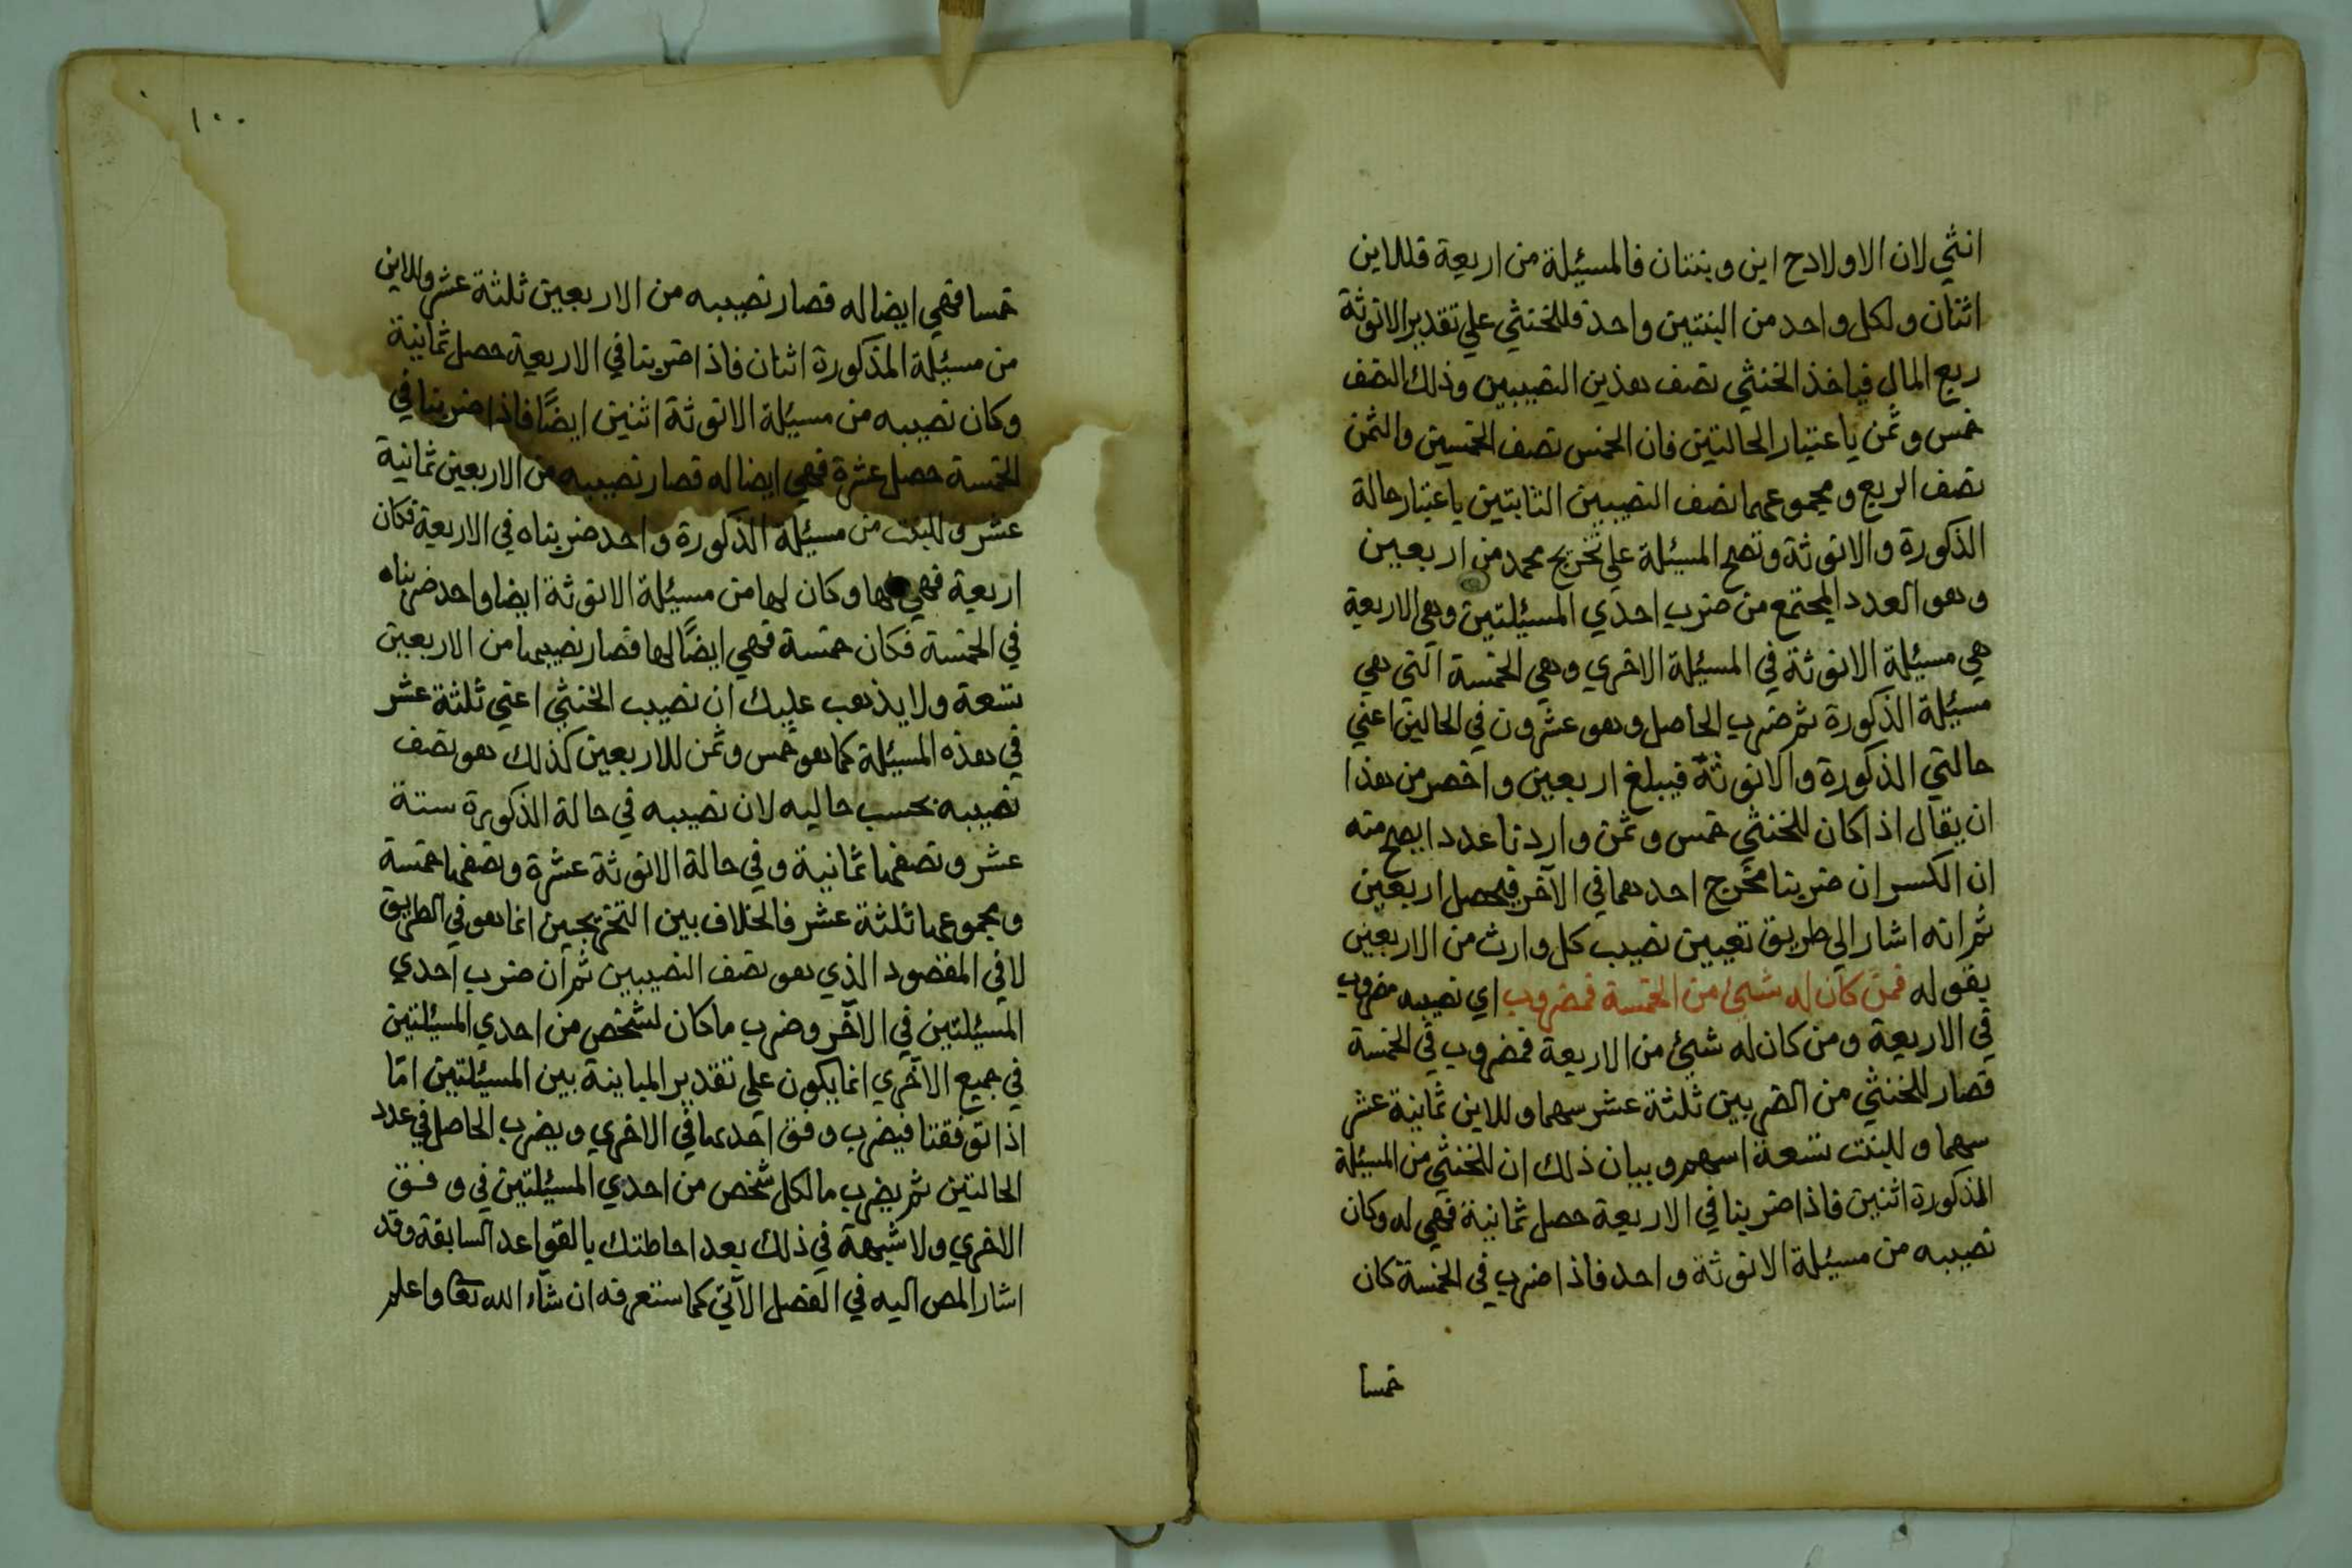 انثي لان الاولاد ح ابن وبنتان فالمسئلة من اربعة فللابن
اثنان ولكل واحد من البنتين واحد فللخنثي علي تقدير الانوثة
ربع المال فياخذ الخنثي نصف هذين النصيبين وذلك النصف
خمس وثمن باعتبار الحالتين فان الخمس نصف الخمسين والثمن
نصف الربع ومجموعهما نصف النصيبين الثابتين باعتبار حالة
الذكورة والانوثة وتصح المسئلة علي تخريج محمد من اربعين
وهو العدد المجتمع من ضرب احدي المسئلتين وهي الاربعة
هي مسئلة الانوثة في المسئلة الاخري وهي الخمسة التي هي
مسئلة الذكورة ثم ضرب الحاصل وهو عشرون في الحالين اعني
حالتي الذكورة والانوثة فيبلغ اربعين واخصر من هذا
ان يقال اذا كان للخنثي خمس وثمن واردنا عددا يصح منه
ان الكسران ضربنا مخرج احدهما في الآخر فيحصل اربعين
ثم انه اشار الي طريق تعيين نصيب كل وارث من الاربعين
بقوله فمن كان له شيئ من الخمسة فمضروب اي نصيبه مضروب
في الاربعة ومن كان له شيئ من الاربعة فمضروب في الخمسة
فصار للخنثي من الضربين ثلثة عشر سهما وللابن ثمانية عشر
سهما وللبنت تسعة اسهم وبيان ذلك ان للخنثي من المسئلة
المذكورة اثنين فاذا ضربنا في الاربعة حصل ثمانية فهي له وكان
نصيبه من مسئلة الانوثة واحد فاذا ضرب في الخمسة كان
خمسا
١٠٠
خمسا فهي ايضا له فصار نصيبه من الاربعين ثلثة عشر وللابن
من مسئلة المذكورة اثنان فاذا ضربنا في الاربعة حصل ثمانية
وكان نصيبه من مسئلة الانوثة اثنين ايضًا فاذا ضربنا في
الخمسة حصل عشرة فهي ايضا له فصار نصيبه من الاربعين ثمانية
عشر وللبنت من مسئلة الذكورة واحد ضربناه في الاربعة فكان
اربعة فهي لها وكان لها من مسئلة الانوثة ايضا واحد ضربناه
في الخمسة فكان خمسة فهي ايضًا لها فصار نصيبها من الاربعين
تسعة ولا يذهب عليك ان نصيب الخنثي اعني ثلثة عشر
في هذه المسئلة كما هو خمس وثمن للاربعين كذلك هو نصف
نصيبه بحسب حاليه لان نصيبه في حالة الذكورة ستة
عشر ونصفها ثمانية وفي حالة الانوثة عشرة ونصفها خمسة
ومجموعها ثلثة عشر فالخلاف بين التخريجين انما هو في الطريق
لا في المقصود الذي هو نصف النصيبين ثم ان ضرب احدي
المسئلتين في الآخر وضرب ما كان لشخص من احدي المسئلتين
في جميع الاخري انما يكون علي تقدير المباينة بين المسئلتين امّا
اذا توفقتا فيضرب وفق احدىها في الاخري ويضرب الحاصل في عدد
الحالتين ثم يضرب ما لكل شخص من احدي المسئلتين في وفق
الاخري ولا شبهة في ذلك بعد احاطتك بالقواعد السابقة وقد
اشار المص اليه في الفصل الآتي كما ستعرفه ان شاء الله تعا واعلم